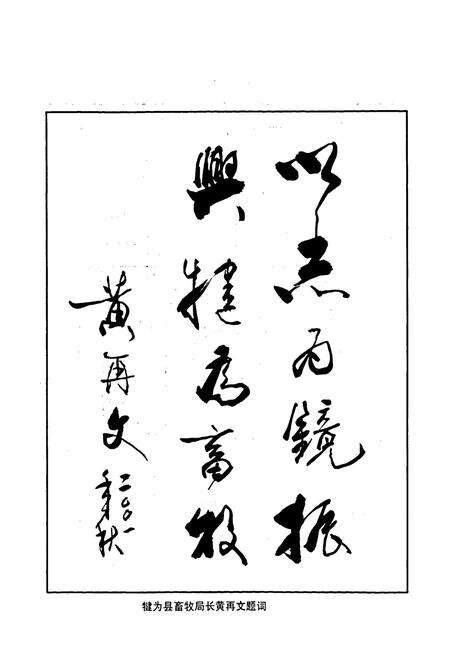 以志为鏡振
興犍為畜牧
黄再文
二〇〇一年秋
犍为县畜牧局长黄再文题词